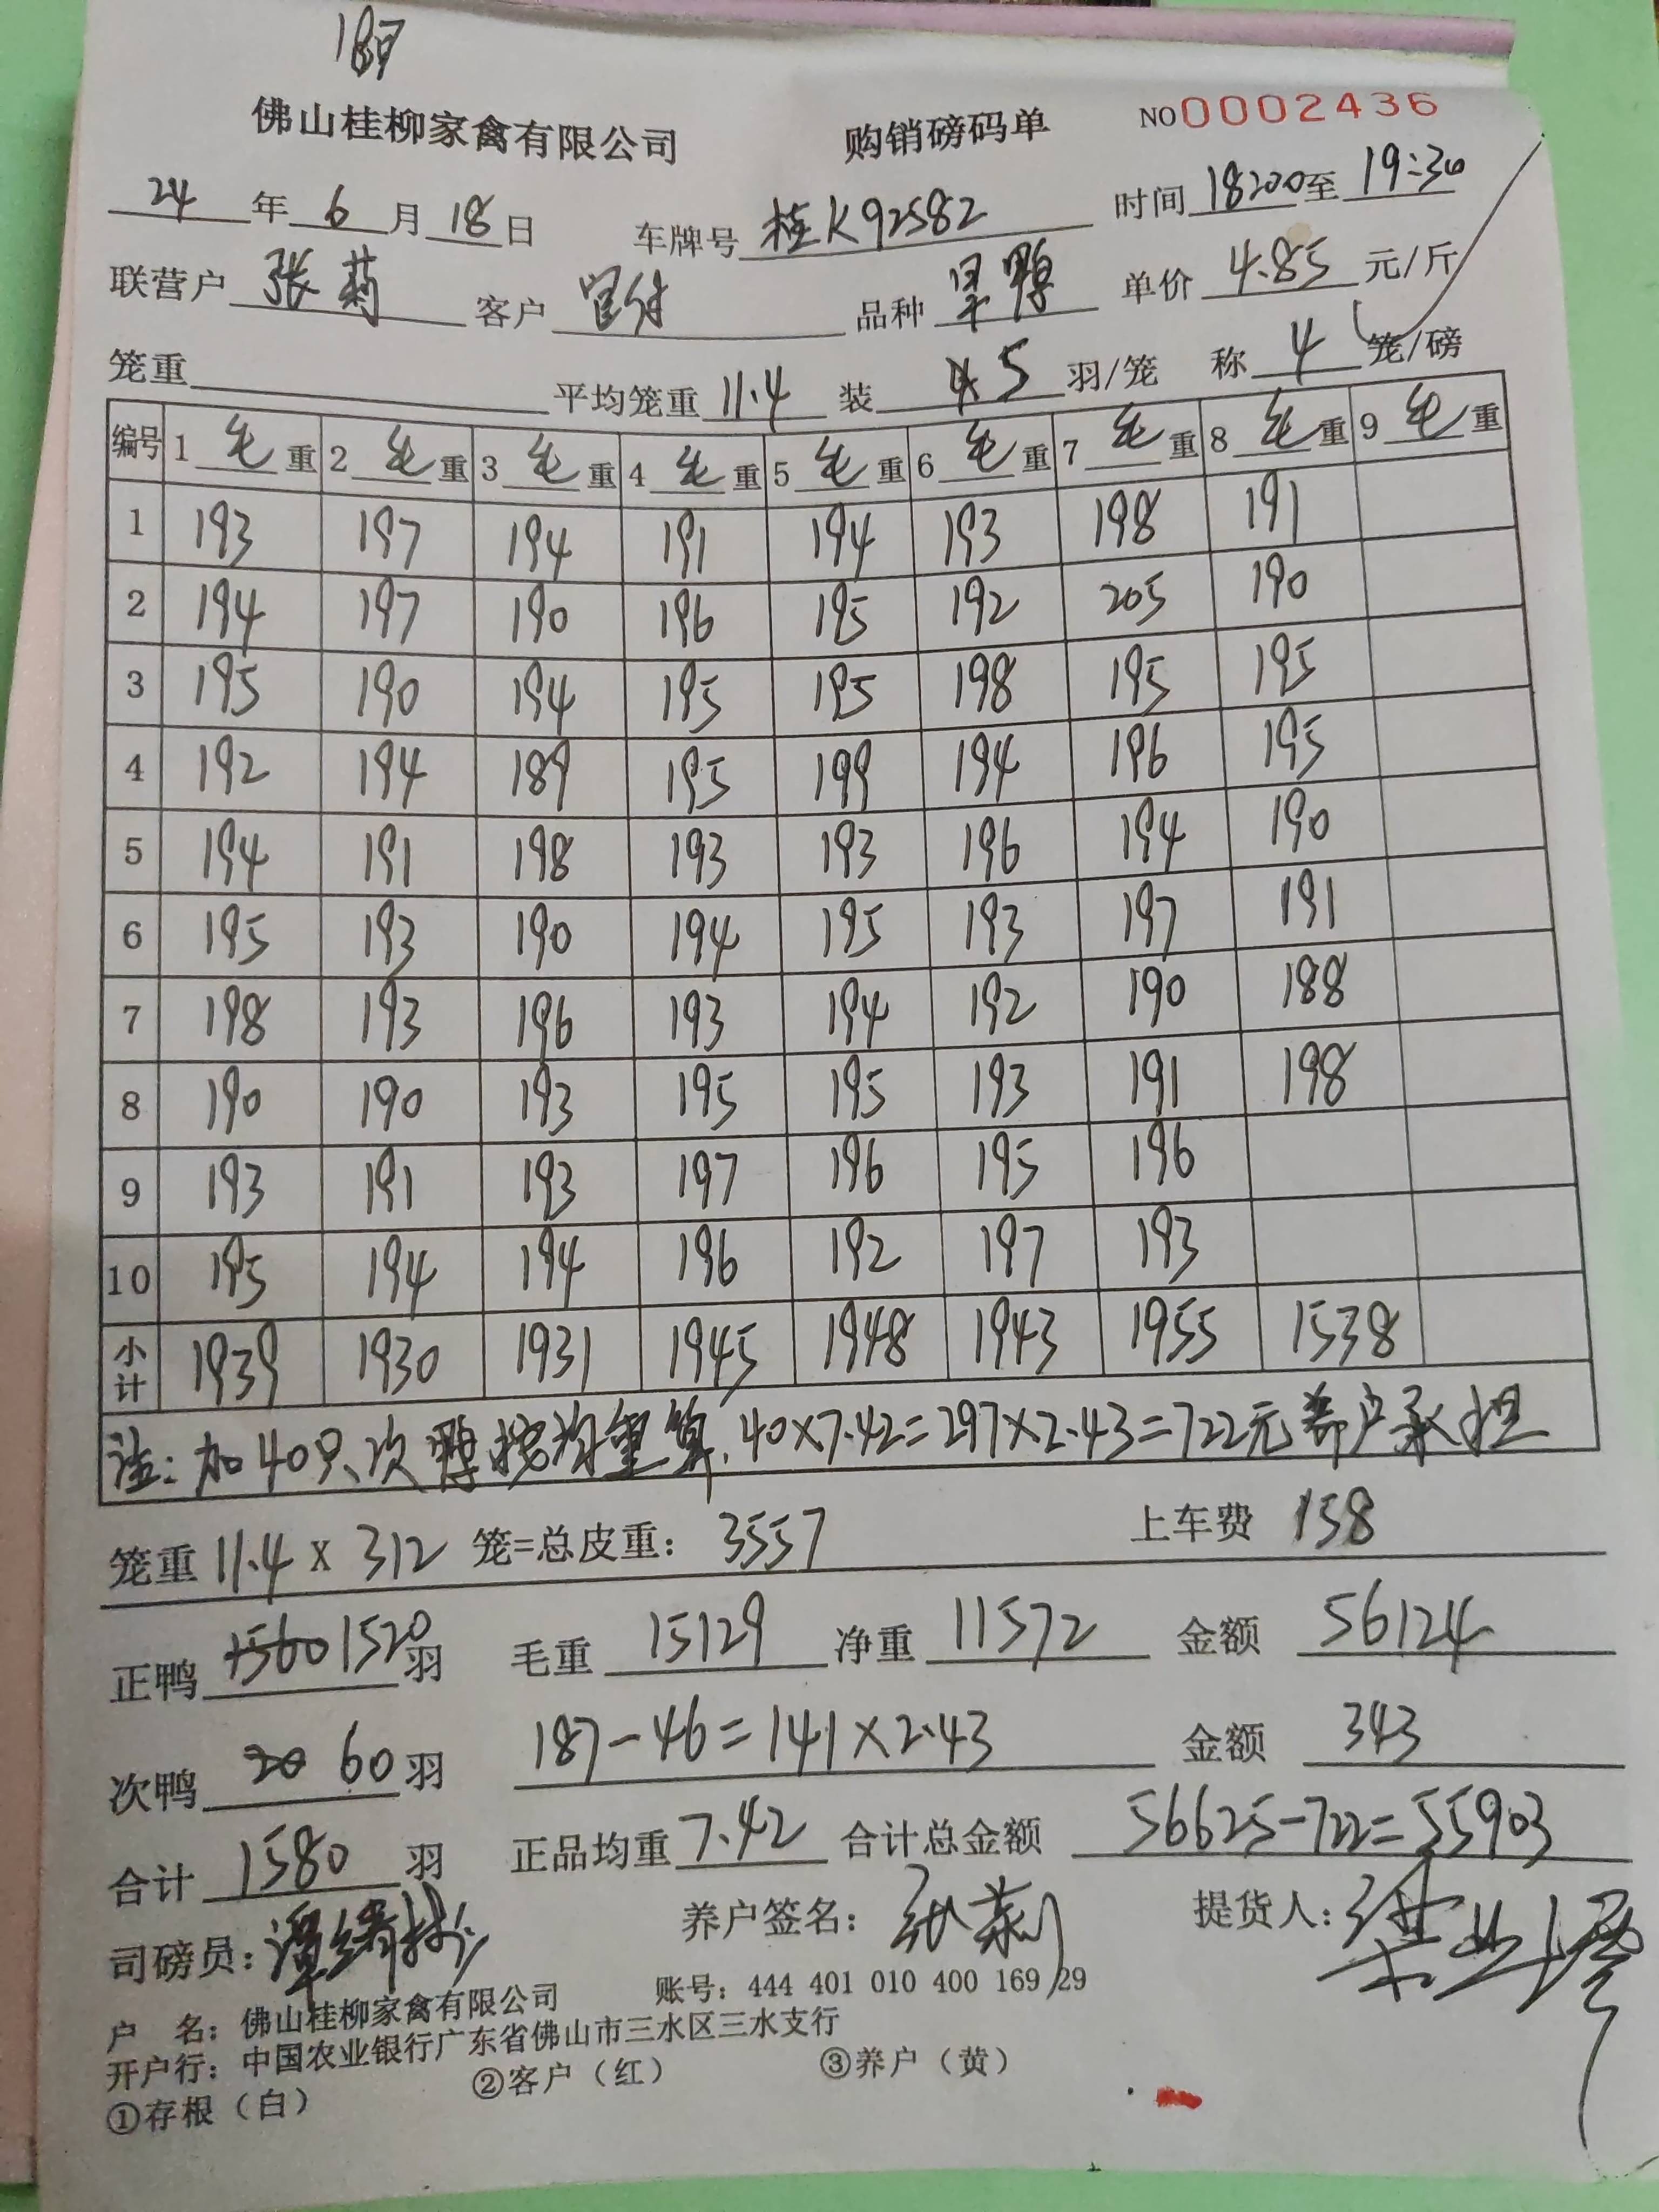 187
佛山桂柳家禽有限公司 购销磅码单 NO0002436
24年6月18日 车牌号桂K92582 时间18:00至19:30
联营户张莉 客户 品种 单价4.85元/斤
笼重 平均笼重11.4 装5羽/笼 称4笼/磅
编号 1毛重 2毛重 3毛重 4毛重 5毛重 6毛重 7毛重 8毛重 9毛重
1 193 197 194 191 194 193 198 191
2 194 197 190 196 195 192 205 190
3 195 190 194 195 195 198 195 195
4 192 194 189 195 199 194 196 195
5 194 191 198 193 193 196 194 190
6 195 193 190 194 195 193 197 191
7 198 193 196 193 194 192 190 188
8 190 190 193 195 195 193 191 198
9 193 191 193 197 196 195 196
10 195 194 194 196 192 197 193
小计 1939 1930 1931 1945 1948 1943 1955 1538
注:加40只次鸭按均重算.40×7.42=297×2.43=722元养户承担
笼重11.4×312笼=总皮重:3557 上车费158
正鸭1560 1520羽 毛重15129 净重11572 金额56124
次鸭20 60羽 187-46=141×2.43 金额343
合计1580羽 正品均重7.42 合计总金额56625-722=55903
司磅员: 养户签名:张莉 提货人:
户 名:佛山桂柳家禽有限公司 账号:444 401 010 400 169 29
开户行:中国农业银行广东省佛山市三水区三水支行
①存根(白) ②客户(红) ③养户(黄)